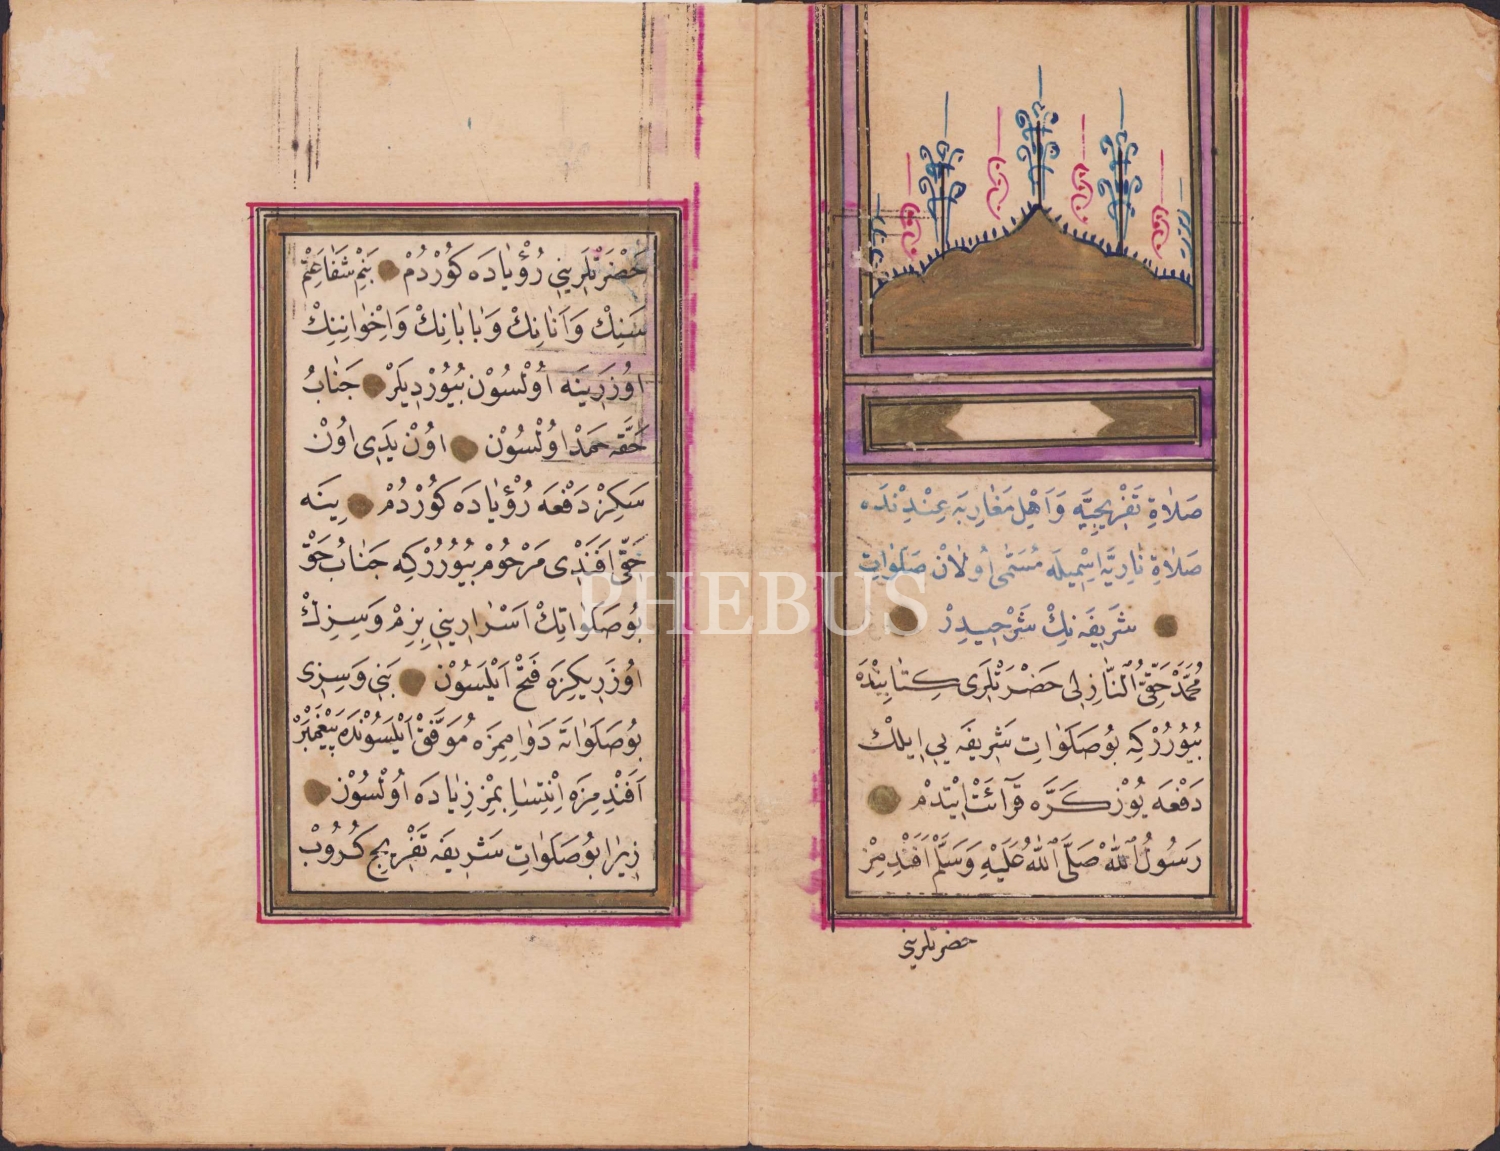 صَلَاةِ تَفْرِيجِيَّه وَاَهْلِ مَغَارِبَه عِنْدِنْدَه
صَلَاةِ نَارِيَّه اِسْمِيلَه مُسَمَّى اُولَانْ صَلَوَاتِ
شَرِيفَه نِكْ شَرْحِيدِرْ
مُحَمَّدْ حَقِّىُّ النَّازِلِى حَضْرَتْلَرِى كِتَابِنْدَه
بُيُورُرْكِه بُوصَلَوَاتِ شَرِيفَه يِى اِيلْكْ
دَفْعَه يُوزْ كَرَّه قِرَآئَتْ اِيتْدِمْ
رَسُولُ اللّٰهْ صَلَّى اللّٰهُ عَلَيْهِ وَسَلَّمْ اَفَنْدِمِزْ
حضرتلرينى
حَضْرَتْلَرِينِى رُؤْيَادَه كُورْدُمْ بَنِمْ شَفَاعَتِمْ
سَنِكْ وَاَنَانِكْ وَبَابَانِكْ وَاِخْوَانِنِكْ
اُوزَرِينَه اُولْسُونْ بُيُورْدِيلَرْ جَنَابُ
حَقَّه حَمْدْ اُولْسُونْ اُونْ يَدِى اُونْ
سَكِزْ دَفْعَه رُؤْيَادَه كُورْدُمْ يِنَه
حَقِّى اَفَنْدِى مَرْحُومْ بُيُورُرْكِه جَنَابُ حَقْ
بُوصَلَوَاتِكْ اَسْرَارِينِى بِزِمْ وَسِزِكْ
اُوزَرِيكِزَه فَتْحْ اَيْلَسُونْ بَنِى وَسِزِى
بُوصَلَوَاتَه دَوَامِمِزَه مُوَفَّقْ اَيْلَسُونْدَه پَيْغَمْبَرْ
اَفَنْدِمِزَه اِنْتِسَابِمِزْ زِيَادَه اُولْسُونْ
زِيرَا بُوصَلَوَاتِ شَرِيفَه تَفْرِيجِ كُرُوبْ
PHEBUS